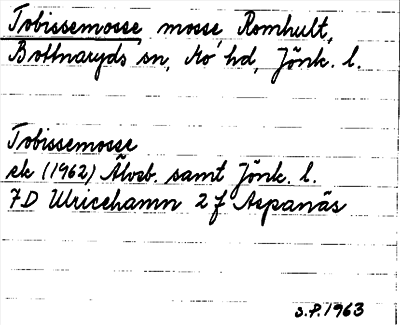 Tobissemosse mosse Romhult,
Bottnaryds sn, Mo hd, Jönk. l.
Tobissemosse
ek (1962) Älvsb. samt Jönk. l.
7D Ulricehamn 2 f Aspanäs
S.P. 1963